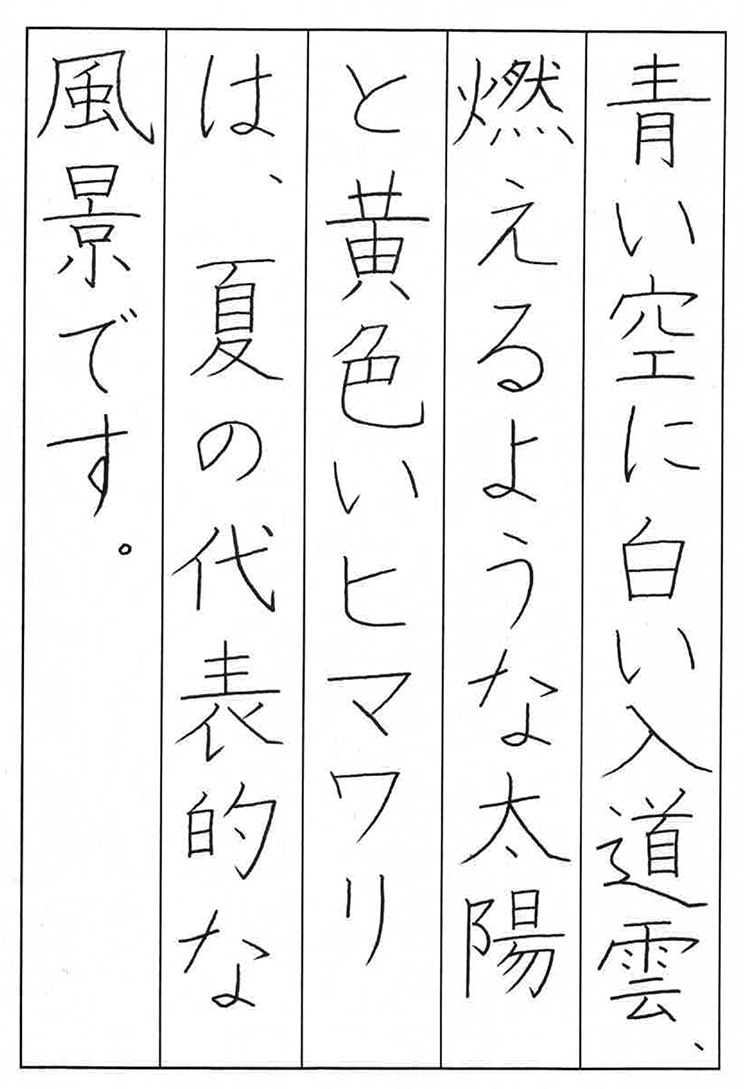 青い空に白い入道雲、
燃えるような太陽
と黄色いヒマワリ
は、夏の代表的な
風景です。